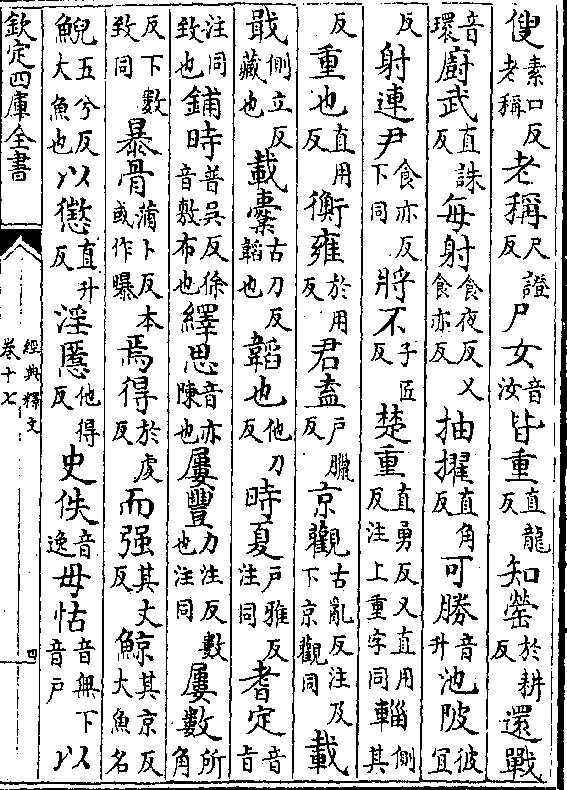 傁素口反老稱老稱尺證反尸女音汝皆重直龍反知罃於耕反還戰
音環廚武直誅反每射食夜反又食亦反抽擢直角反可勝音升池陂彼冝
反射連尹食亦反下同將不子匠反楚重直勇反又直用反注上重字同輜側其
反重也直用反衡雍於用反君盍戶臘反京觀古亂反注及下京觀同載
戢側立反藏也載櫜古刀反韜也韜也他刀反時夏戶雅反注同耆定音旨
注同致也鋪時普吳反徐音敷布也繹思音亦陳也屢豐力注反數也注同屢數所角
反下數致同暴骨蒲卜反本或作曝焉得於虔反而强其丈反鯨其京反大魚名
鯢五兮反大魚也以懲直升反淫慝他得反史佚音逸毋怙音無下音戶以
欽定四庫全書
經典釋文
卷十七
四